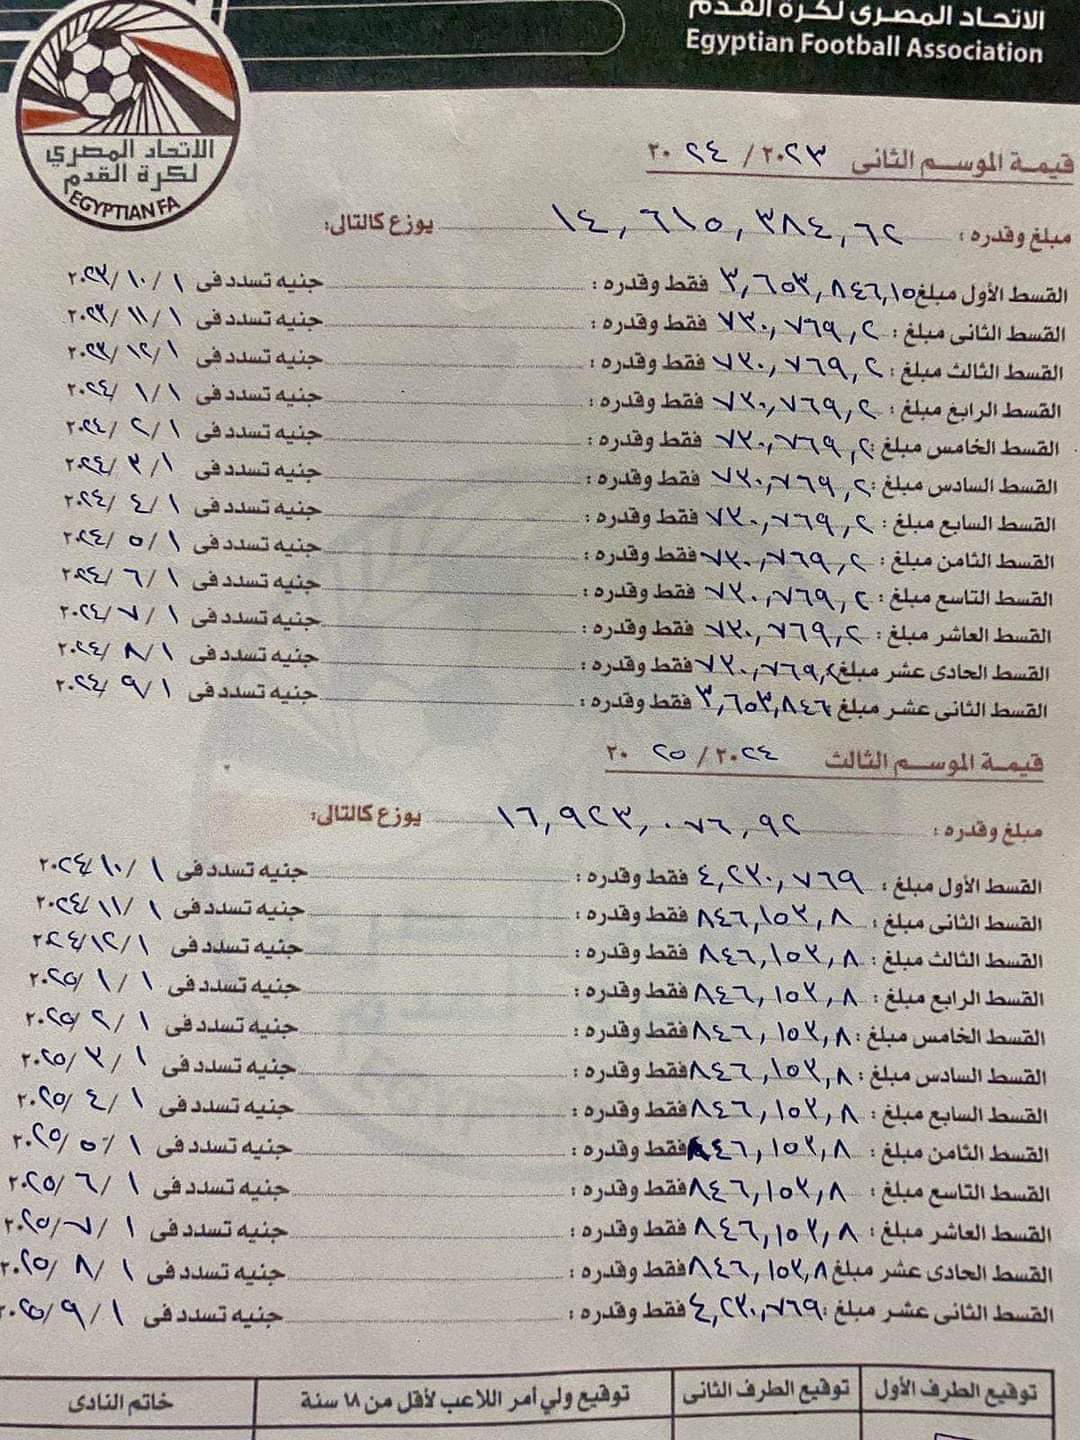 الاتحاد المصرى لكرة القدم
Egyptian Football Association
الاتحاد المصري
لكرة القدم
EGYPTIAN FA
قيمة الموسم الثانى ٢٠٢٣ / ٢٠٢٤
مبلغ وقدره : ١٤,٦١٥,٣٨٤,٦٢ يوزع كالتالى:
القسط الأول مبلغ ٣,٦٥٣,٨٤٦,١٥ فقط وقدره : جنيه تسدد فى ١ / ١٠ / ٢٠٢٣
القسط الثانى مبلغ : ٧٣٠,٧٦٩,٢ فقط وقدره : جنيه تسدد فى ١ / ١١ / ٢٠٢٣
القسط الثالث مبلغ : ٧٣٠,٧٦٩,٢ فقط وقدره : جنيه تسدد فى ١ / ١٢ / ٢٠٢٣
القسط الرابع مبلغ : ٧٣٠,٧٦٩,٢ فقط وقدره : جنيه تسدد فى ١ / ١ / ٢٠٢٤
القسط الخامس مبلغ : ٧٣٠,٧٦٩,٢ فقط وقدره : جنيه تسدد فى ١ / ٢ / ٢٠٢٤
القسط السادس مبلغ : ٧٣٠,٧٦٩,٢ فقط وقدره : جنيه تسدد فى ١ / ٣ / ٢٠٢٤
القسط السابع مبلغ : ٧٣٠,٧٦٩,٢ فقط وقدره : جنيه تسدد فى ١ / ٤ / ٢٠٢٤
القسط الثامن مبلغ : ٧٣٠,٧٦٩,٢ فقط وقدره : جنيه تسدد فى ١ / ٥ / ٢٠٢٤
القسط التاسع مبلغ : ٧٣٠,٧٦٩,٢ فقط وقدره : جنيه تسدد فى ١ / ٦ / ٢٠٢٤
القسط العاشر مبلغ : ٧٣٠,٧٦٩,٢ فقط وقدره : جنيه تسدد فى ١ / ٧ / ٢٠٢٤
القسط الحادى عشر مبلغ ٧٣٠,٧٦٩,٢ فقط وقدره : جنيه تسدد فى ١ / ٨ / ٢٠٢٤
القسط الثانى عشر مبلغ ٣,٦٥٣,٨٤٦ فقط وقدره : جنيه تسدد فى ١ / ٩ / ٢٠٢٤
قيمة الموسم الثالث ٢٠٢٤ / ٢٠٢٥
مبلغ وقدره : ١٦,٩٢٣,٠٧٦,٩٢ يوزع كالتالى:
القسط الأول مبلغ : ٤,٢٣٠,٧٦٩ فقط وقدره : جنيه تسدد فى ١ / ١٠ / ٢٠٢٤
القسط الثانى مبلغ : ٨٤٦,١٥٣,٨ فقط وقدره : جنيه تسدد فى ١ / ١١ / ٢٠٢٤
القسط الثالث مبلغ : ٨٤٦,١٥٣,٨ فقط وقدره : جنيه تسدد فى ١ / ١٢ / ٢٠٢٤
القسط الرابع مبلغ : ٨٤٦,١٥٣,٨ فقط وقدره : جنيه تسدد فى ١ / ١ / ٢٠٢٥
القسط الخامس مبلغ : ٨٤٦,١٥٣,٨ فقط وقدره : جنيه تسدد فى ١ / ٢ / ٢٠٢٥
القسط السادس مبلغ : ٨٤٦,١٥٣,٨ فقط وقدره : جنيه تسدد فى ١ / ٣ / ٢٠٢٥
القسط السابع مبلغ : ٨٤٦,١٥٣,٨ فقط وقدره : جنيه تسدد فى ١ / ٤ / ٢٠٢٥
القسط الثامن مبلغ : ٨٤٦,١٥٣,٨ فقط وقدره : جنيه تسدد فى ١ / ٥ / ٢٠٢٥
القسط التاسع مبلغ : ٨٤٦,١٥٣,٨ فقط وقدره : جنيه تسدد فى ١ / ٦ / ٢٠٢٥
القسط العاشر مبلغ : ٨٤٦,١٥٣,٨ فقط وقدره : جنيه تسدد فى ١ / ٧ / ٢٠٢٥
القسط الحادى عشر مبلغ ٨٤٦,١٥٣,٨ فقط وقدره : جنيه تسدد فى ١ / ٨ / ٢٠٢٥
القسط الثانى عشر مبلغ : ٤,٢٣٠,٧٦٩ فقط وقدره : جنيه تسدد فى ١ / ٩ / ٢٠٢٥
توقيع الطرف الأول توقيع الطرف الثانى توقيع ولي أمر اللاعب لأقل من ١٨ سنة خاتم النادى